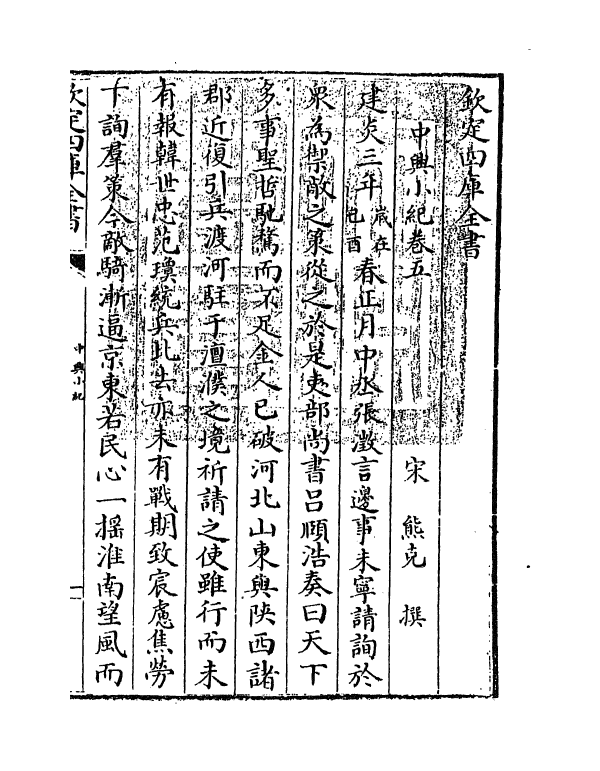 欽定四庫全書
中興小紀卷五
宋 熊克 撰
建炎三年歲在己酉春正月中丞張澂言邊事未寧請詢於
衆為禦敵之策從之於是吏部尚書呂頤浩奏曰天下
多事聖哲馳騖而不足金人已破河北山東與陜西諸
郡近復引兵渡河駐于澶濮之境祈請之使雖行而未
有報韓世忠范瓊統兵北去亦未有戰期致宸慮焦勞
下詢羣策今敵騎漸逼京東若民心一揺淮南望風而
欽定四庫全書
中興小紀
一